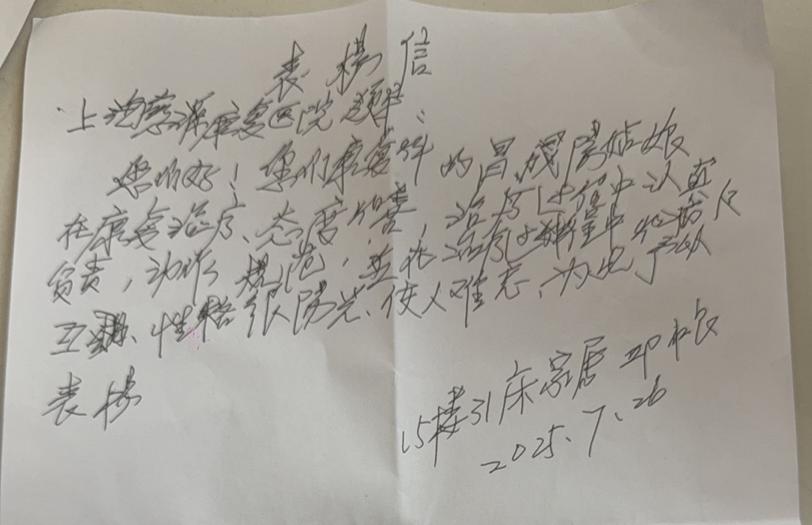 表扬信
上海慈源康复医院领导：
您们好！您们康复科的肖 姑娘
在康复治疗、态度 善，治疗过程中认真
负责，动作规范，并在治疗过程中 病人
互 、性格很阳光、使人难忘、为此予以
表扬
15楼31床家属
2025.7.26